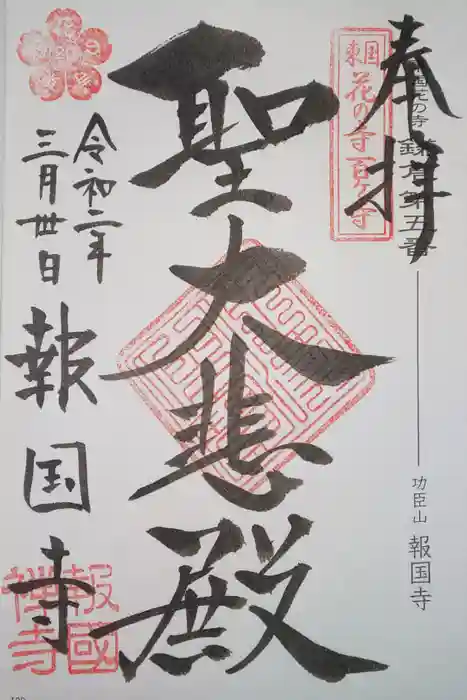 奉拝
東国花の寺百ヶ寺
鎌倉第五番
功臣山 報国寺
聖大悲殿
令和二年
三月卅日
報国寺
報國禅寺